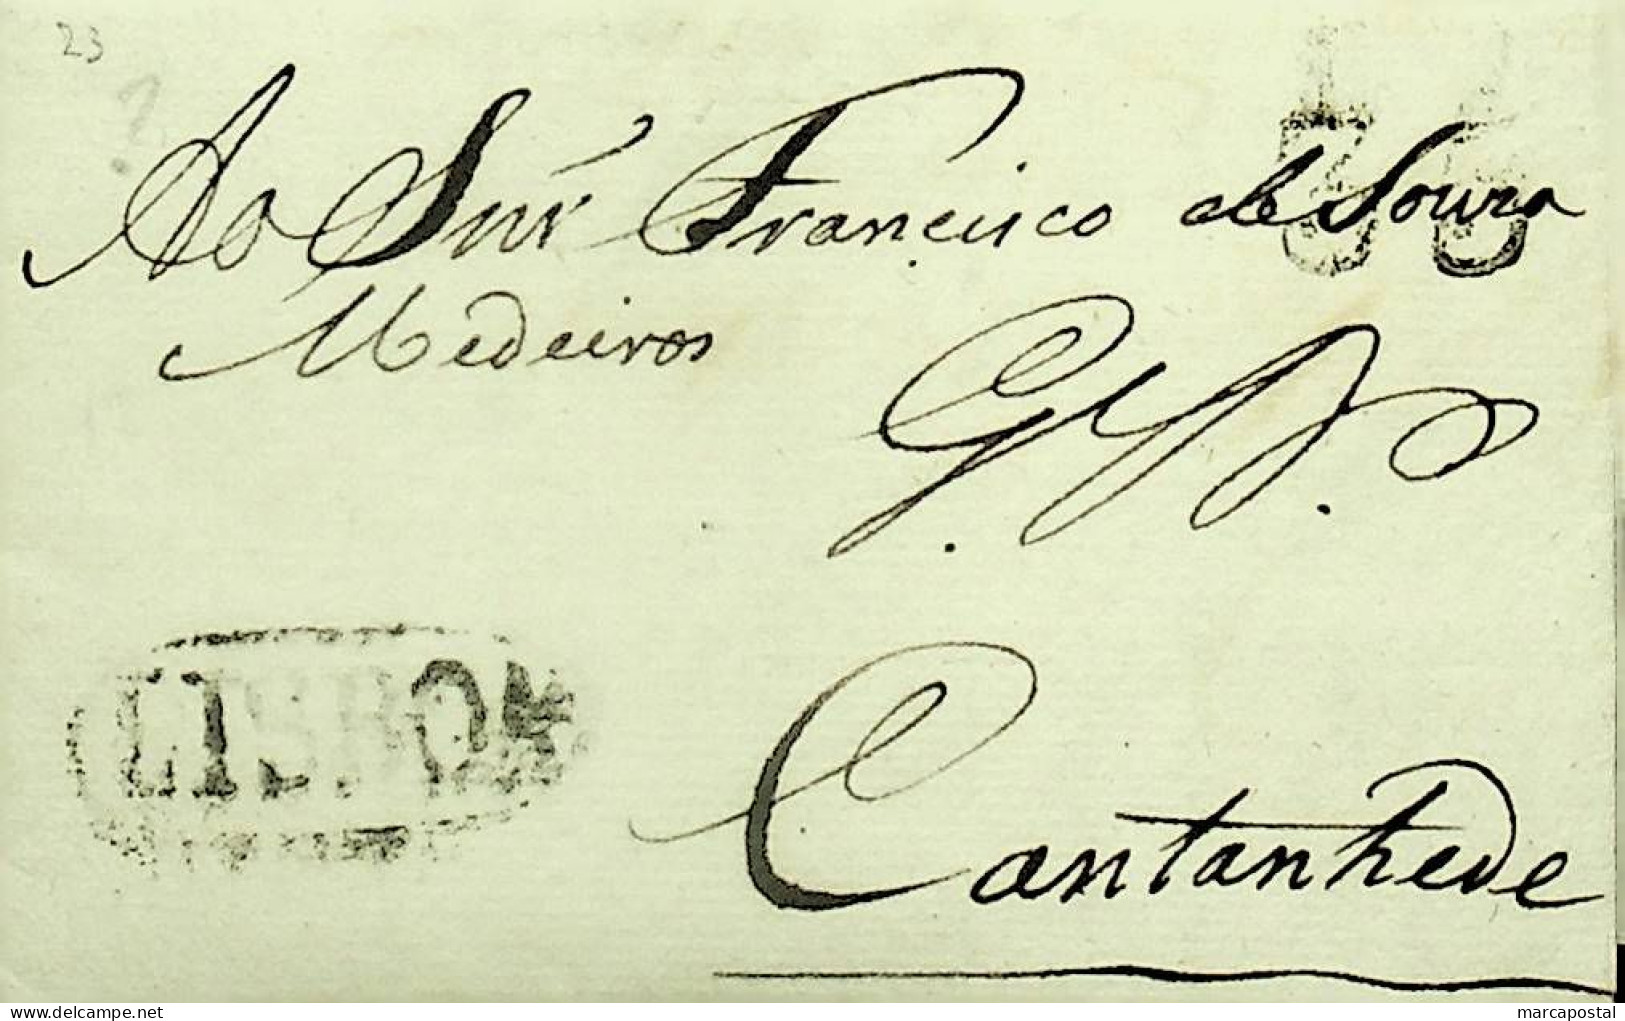 23
Ao Snr Francisco de Souza
Medeiros
Cantanhede
LISBOA
delcampe.net
marcapostal